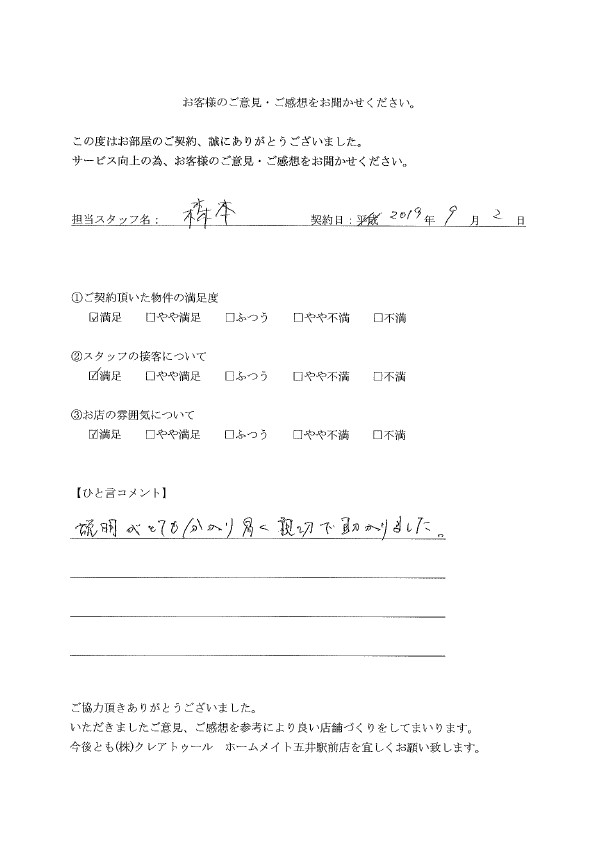 お客様のご意見・ご感想をお聞かせください。
この度はお部屋のご契約、誠にありがとうございました。
サービス向上の為、お客様のご意見・ご感想をお聞かせください。
担当スタッフ名： 森本 契約日：平成 2019 年 9 月 2 日
①ご契約頂いた物件の満足度
☑満足 □やや満足 □ふつう □やや不満 □不満
②スタッフの接客について
☑満足 □やや満足 □ふつう □やや不満 □不満
③お店の雰囲気について
☑満足 □やや満足 □ふつう □やや不満 □不満
【ひと言コメント】
説明がとても分かり易く親切で助かりました。
ご協力頂きありがとうございました。
いただきましたご意見、ご感想を参考により良い店舗づくりをしてまいります。
今後とも(株)クレアトゥール　ホームメイト五井駅前店を宜しくお願い致します。